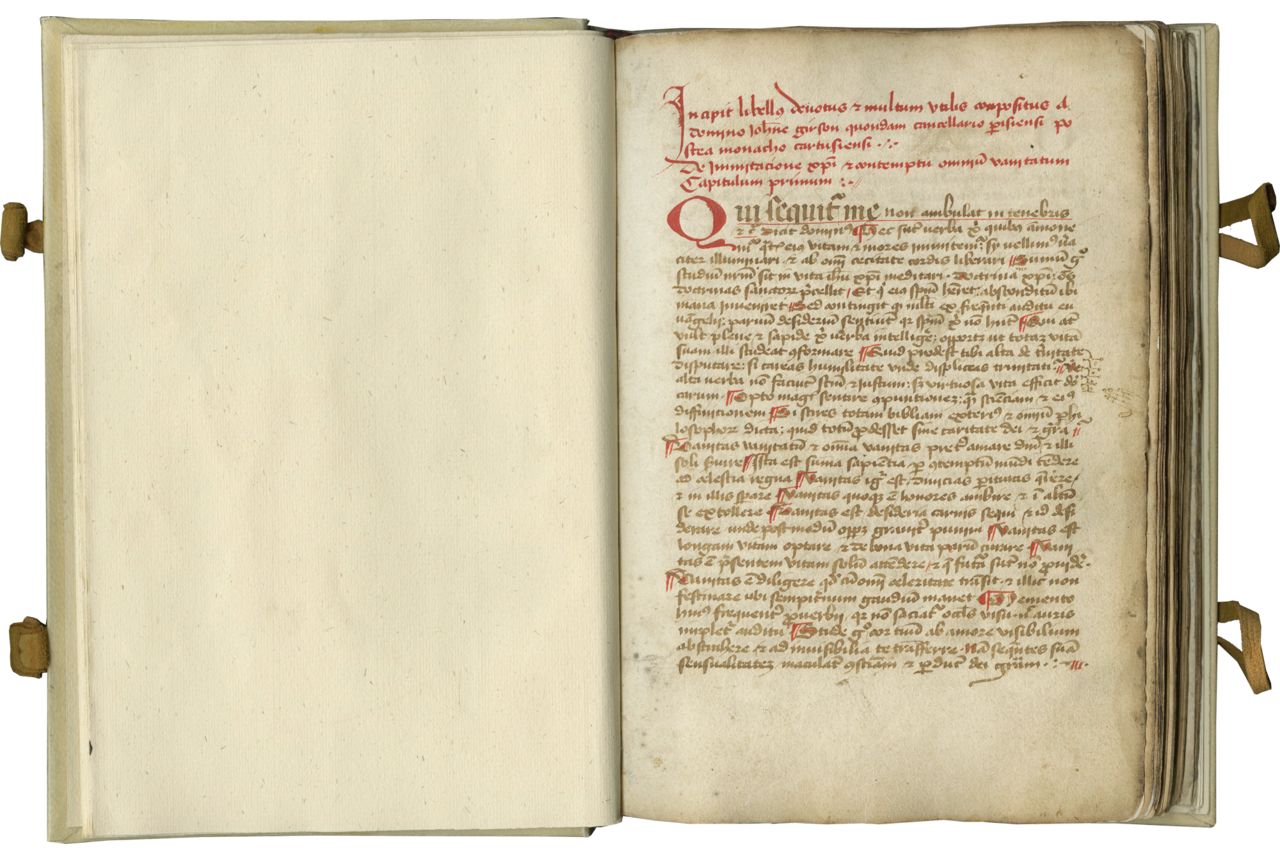 Incipit libellus devotus et multum utilis compositus a
domino Johne gerson quondam cancellario parisiensi po
stea monacho cartusiensi
De Immitacione xpi et contemptu omniu vanitatum
Capitulum primum
Qui sequit me non ambulat in tenebris
dicit dominus Hec sut verba quibus amone
mr eius vitam et mores imitemur si vellimus vera
citer illuminari et ab omi cecitate cordis liberari Sumu
studiu nrm sit in vita ihu xpi meditari Doctrina xpi
doctrinas sanctorz precellit Et q eius spm heret absconditu ibi
manna inveniret Sed contingit q multi ex frequenti auditu eu
vangelij parvu desideriu sentiut qr spm no hnt Qui at
vult plene et sapide verba intelligere oportz ut totaz vita
suam illi studeat conformare Quid prodest tibi alta de trinitate
disputare si careas humilitate unde displiceas trinitati
alta verba no faciut sctm et Justum sz virtuosa vita efficit deo
carum Opto magis sentire compunctionez scienciam et eius
diffinicionem Si scires totam bibliam exterius et omniu phi
losophorz dicta quid totu prodesset sine caritate dei et gra
Vanitas vanitatu et omia vanitas preter amare deu et illi
soli servire Ista est suma sapiencia per contemptum mudi tedere
ad celestia regna Vanitas igr est divicias perituras querere
et in illis sperare Vanitas quoque e honores ambire et i altu
se extollere Vanitas est desideria carnis sequi et id desi
derare unde postmodu oportz graviter puniri Vanitas est
longam vitam optare et de bona vita parum curare Vani
tas e presentem vitam solu attedere et q futura sut no providere
Vanitas e diligere qd cu omni celeritate transit et illic non
festinare ubi sempiternum gaudium manet Memento
huius frequenter proverbij qr non saciatur oculus visu nec auris
impletur auditu Stude ergo cor tuum ab amore visibilium
abstrahere et ad invisibilia te transferre Na sequentes sua
sensualitatez maculat consciam et perdut dei gratiam